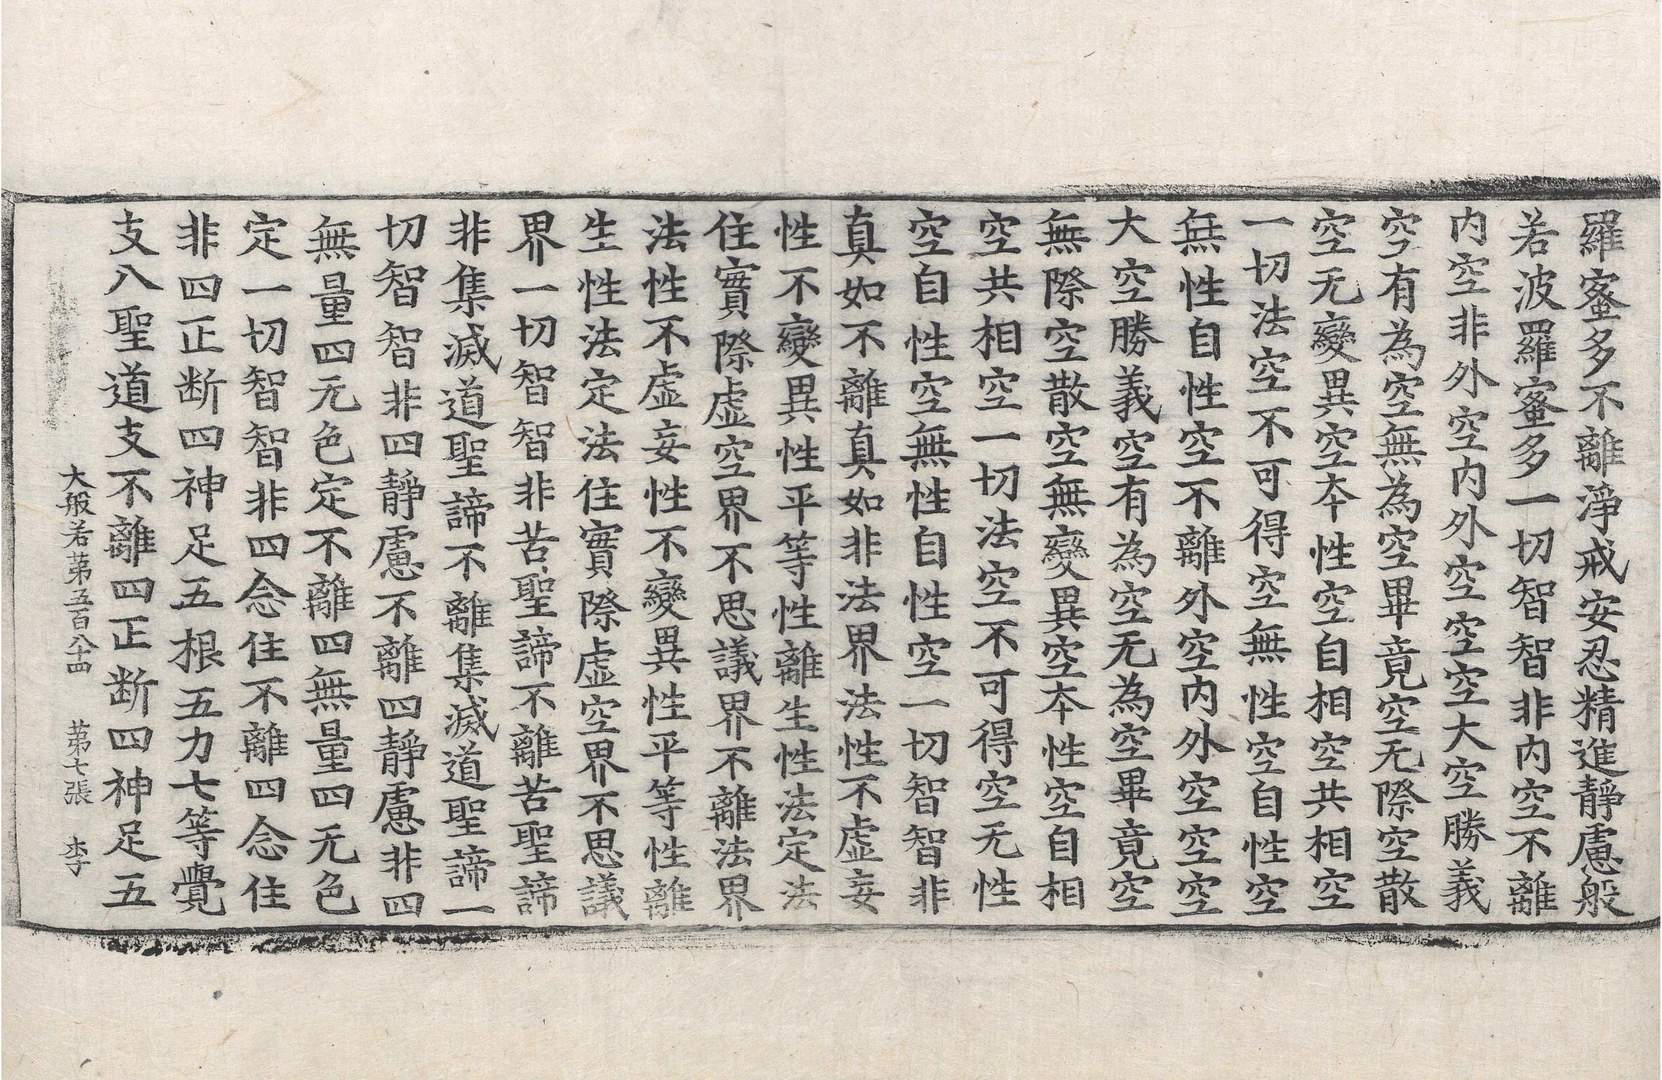 羅蜜多不離淨戒安忍精進靜慮般
若波羅蜜多一切智智非內空不離
內空非外空內外空空空大空勝義
空有為空無為空畢竟空无際空散
空无變異空本性空自相空共相空
一切法空不可得空無性空自性空
無性自性空不離外空內外空空空
大空勝義空有為空无為空畢竟空
無際空散空無變異空本性空自相
空共相空一切法空不可得空无性
空自性空無性自性空一切智智非
真如不離真如非法界法性不虛妄
性不變異性平等性離生性法定法
住實際虛空界不思議界不離法界
法性不虛妄性不變異性平等性離
生性法定法住實際虛空界不思議
界一切智智非苦聖諦不離苦聖諦
非集滅道聖諦不離集滅道聖諦一
切智智非四靜慮不離四靜慮非四
無量四无色定不離四無量四无色
定一切智智非四念住不離四念住
非四正断四神足五根五力七等覺
支八聖道支不離四正断四神足五
大般若苐五百八十四 苐七張 李